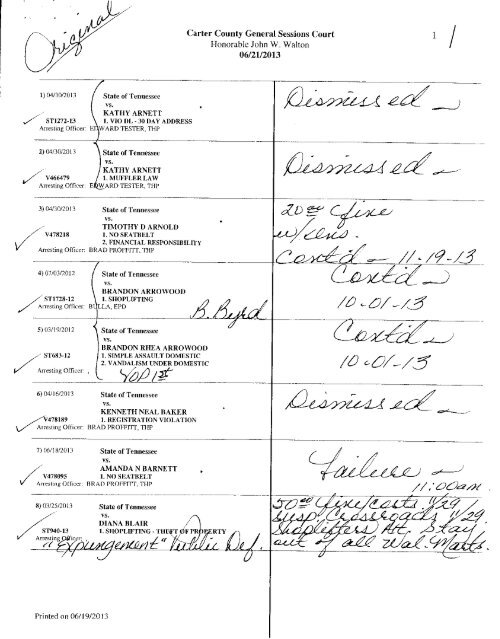 Original
Carter County General Sessions Court
Honorable John W. Walton
06/21/2013
1 /
1) 04/30/2013 State of Tennessee
vs.
KATHY ARNETT
ST1272-13 1. VIO DL - 30 DAY ADDRESS
Arresting Officer: EDWARD TESTER, THP
Dismissed
2) 04/30/2013 State of Tennessee
vs.
KATHY ARNETT
V466479 1. MUFFLER LAW
Arresting Officer: EDWARD TESTER, THP
Dismissed
3) 04/30/2013 State of Tennessee
vs.
TIMOTHY D ARNOLD
V478218 1. NO SEATBELT
2. FINANCIAL RESPONSIBILITY
Arresting Officer: BRAD PROFFITT, THP
20.00 fine
w/cens.
Cont'd - 11-19-13
4) 07/03/2012 State of Tennessee
vs.
BRANDON ARROWOOD
ST1728-12 1. SHOPLIFTING
Arresting Officer: BULLA, EPD
B. Byrd
Cont'd -
10-01-13
5) 03/19/2012 State of Tennessee
vs.
BRANDON RHEA ARROWOOD
ST683-12 1. SIMPLE ASSAULT DOMESTIC
2. VANDALISM UNDER DOMESTIC
Arresting Officer: ,
YOP 1st
Cont'd -
10-01-13
6) 04/16/2013 State of Tennessee
vs.
KENNETH NEAL BAKER
V478189 1. REGISTRATION VIOLATION
Arresting Officer: BRAD PROFFITT, THP
Dismissed
7) 06/18/2013 State of Tennessee
vs.
AMANDA N BARNETT
V478095 1. NO SEATBELT
Arresting Officer: BRAD PROFFITT, THP
Failure -
11:00am
8) 03/25/2013 State of Tennessee
vs.
DIANA BLAIR
ST940-13 1. SHOPLIFTING - THEFT OF PROPERTY
Arresting Officer:
"Expungement" Public Def.
50.00 fine/costs 11/29
susp. Crossroads 11/29
Shoplifters Alt. Stay
out of all Wal-Marts.
Printed on 06/19/2013